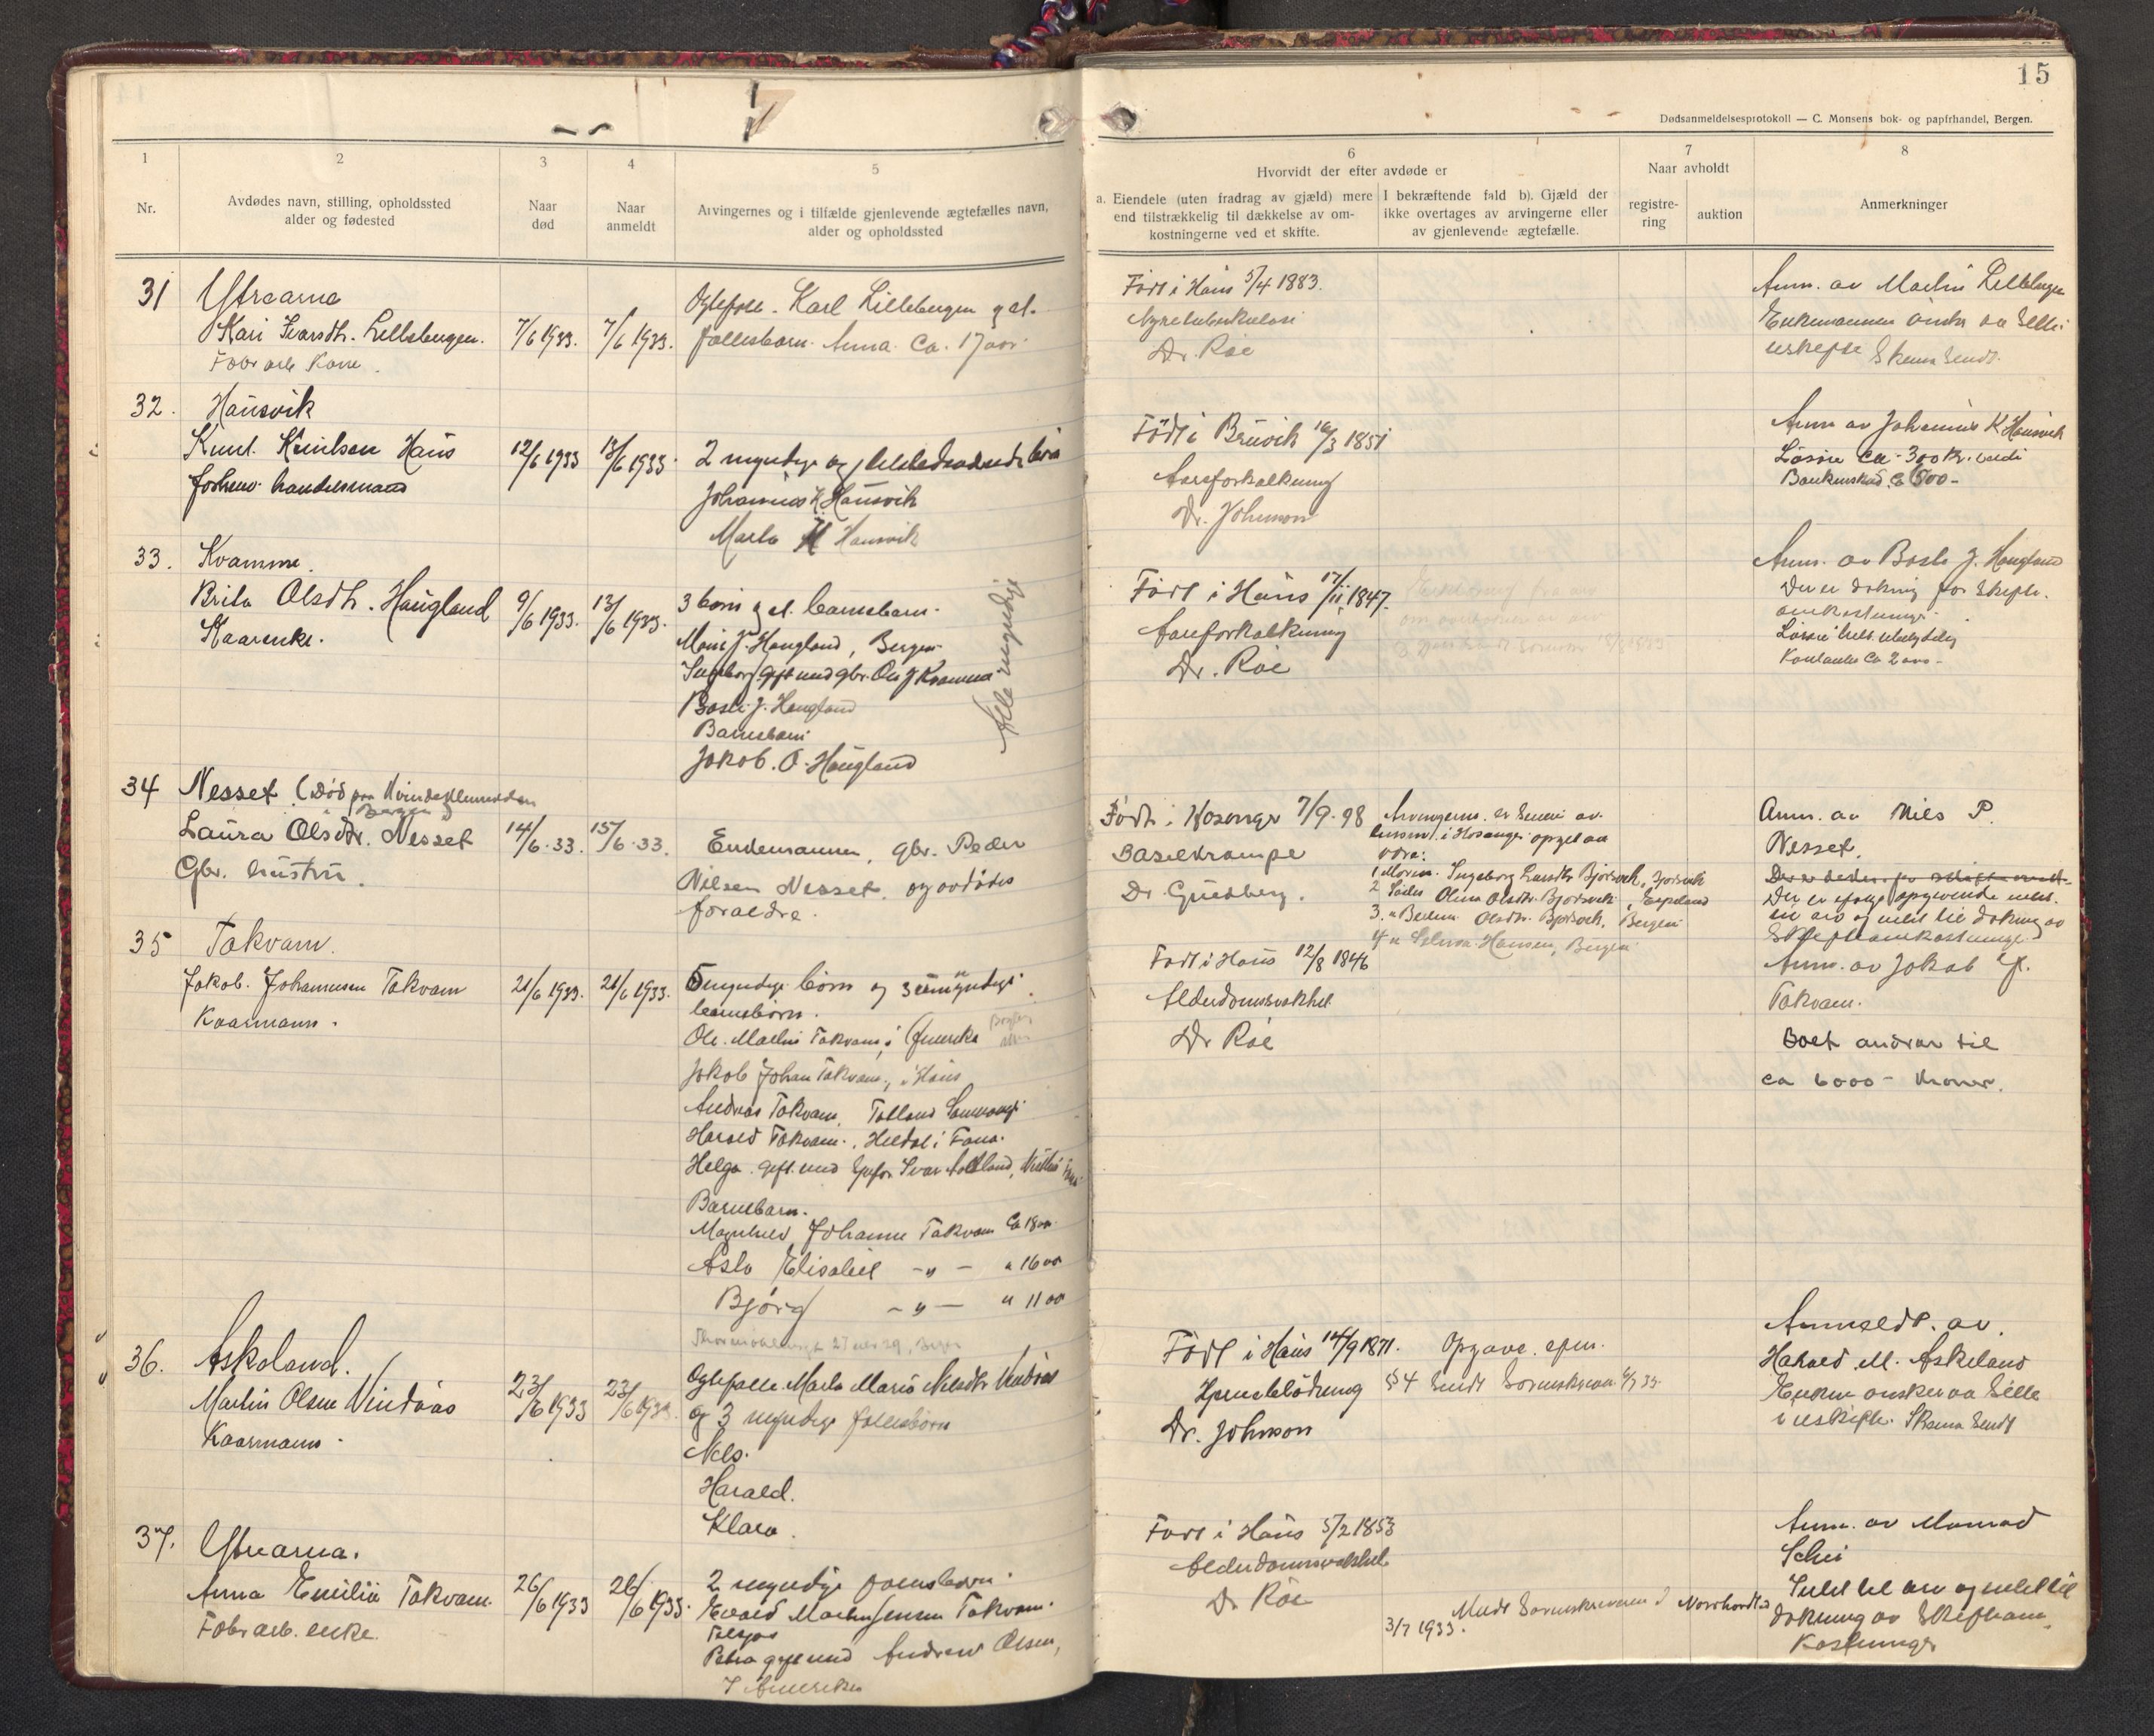 15
Dødsanmeldelsesprotokoll — C. Monsens bok- og papirhandel, Bergen.
1
Nr.
2
Avdødes navn, stilling, opholdssted
alder og fødested
3
Naar
død
4
Naar
anmeldt
5
Arvingernes og i tilfælde gjenlevende ægtefælles navn,
alder og opholdssted
6
Hvorvidt der efter avdøde er
a. Eiendele (uten fradrag av gjæld) mere
end tilstrækkelig til dækkelse av om-
kostningerne ved et skifte.
I bekræftende fald b). Gjæld der
ikke overtages av arvingerne eller
av gjenlevende ægtefælle.
7
Naar avholdt
registre-
ring
auktion
8
Anmerkninger
31
Ytrearna
Kari Ivarsdtr. Lillebergen.
Fabr arb Kone.
7/6 1933.
7/6 1933.
Egtefelle. Karl Lillebergen og et
fællesbarn. Anna ca. 17 aar.
Født i Haus 5/4 1883.
Nyretuberkulose
Dr. Roe
Anm. av Martin Lillebergen
Enkemannen ønsker aa sitte i
uskifte Skema sendt.
32.
Hausvik
Knut Knutsen Haus
forhenv. handelsmand
12/6 1933
13/6 1933.
2 myndige
Johannes K. Hausvik
Marta K Hausvik
Født i Bruvik 16/3 1851
Aareforkalkning
Dr. Johnson
Anm av Johannes K Hausvik
Løsøre ca. 300 kr. verdi
Bankinskud ca 800-
33.
Kvamme.
Brita Olsdtr. Haugland
Kaarenke.
9/6 1933.
13/6 1933.
3 born og et barnebarn.
Mons J. Haugland, Bergen
Ingeborg gift med gbr. Ola J Kvamme
J. Haugland
Barnebarn
Jakob. O. Haugland
Alle myndige
Født i Haus 17/11 1847.
Aareforkalkning
Dr. Roe
Anm. av J. Haugland
Der er dekning for skifte-
omkostninger
Løsøre helt ubetydelig
Kontanter ca 200-
34
Nesset (død paa Kvindeklinnikken
i Bergen)
Laura Olsdtr. Nesset
Gbr. hustru.
14/6.33.
15/6.33.
Enkemannen, gbr. Peder
Nilsen Nesset. og avdødes
foreldre.
Født i Hosanger 7/9.98
Dr. Gundberg.
Arvingerne er senere av
lensm. i Hosanger opgit aa
være:
1 Moren Ingeborg Larsdtr Bjørsvik, Bjørsvik
2 Olina Olsdtr. Bjørsvik, Espeland
3. " Olsdtr. Bjørsvik, Bergen
4 " Hansen, Bergen
Anm. av Nils P.
Nesset.
Der er ifølge opgivende intet
til arv og intet til dekning av
skifteomkostninger
35
Takvam.
Jakob. Johannesen Takvam
Kaarmann.
21/6 1933.
21/6 1933.
5 myndige born og 3 umyndige
barneborn.
Ole Martin Takvam, i Amerika
Jakob Johan Takvam, i Haus
Andreas Takvam, Tolland Samnanger
Harald Takvam, Heldal i Fana.
Helga gift med Ivar
Barnebarn.
Magnhild Johanne Takvam ca 18 aar.
Asla Elisabet -"- " 16 aar
Bjørg -"- " 11 aar
Født i Haus 12/8 1846
Alderdomssvakhet
Dr Roe
Anm. av Jakob J.
Takvam.
Boet andrar til
ca 6000- kroner.
36.
Askeland.
Martin Olsen Vindnes
Kaarmann.
23/6 1933
23/6 1933.
Egtefelle. Marta Maria Nilsdtr
og 3 myndige fellesborn
Nels.
Harald.
Klara.
Født i Haus 14/9 1871.
Hjerneblødning
Dr. Johnson
Opgave efter
§ 4 sendt Sorenskriveren 4/7 33.
Anmeldt av
Harald M. Askeland
Enken ønsker aa sitte
i uskifte. Skema sendt
37.
Ytrearna.
Anna Emilia Takvam.
Fabr arb. enke.
26/6 1933
26/6 1933.
2 myndige
Takvam.
Petra gift med Andrew Olsen,
i Amerika
Født i Haus 5/2 1853
Alderdomssvakhet
Dr Roe
3/7 1933. Meldt Sorenskriveren i Nordhordl.
Anm. av
Intet til arv og intet til
dekning av skifteom-
kostninger